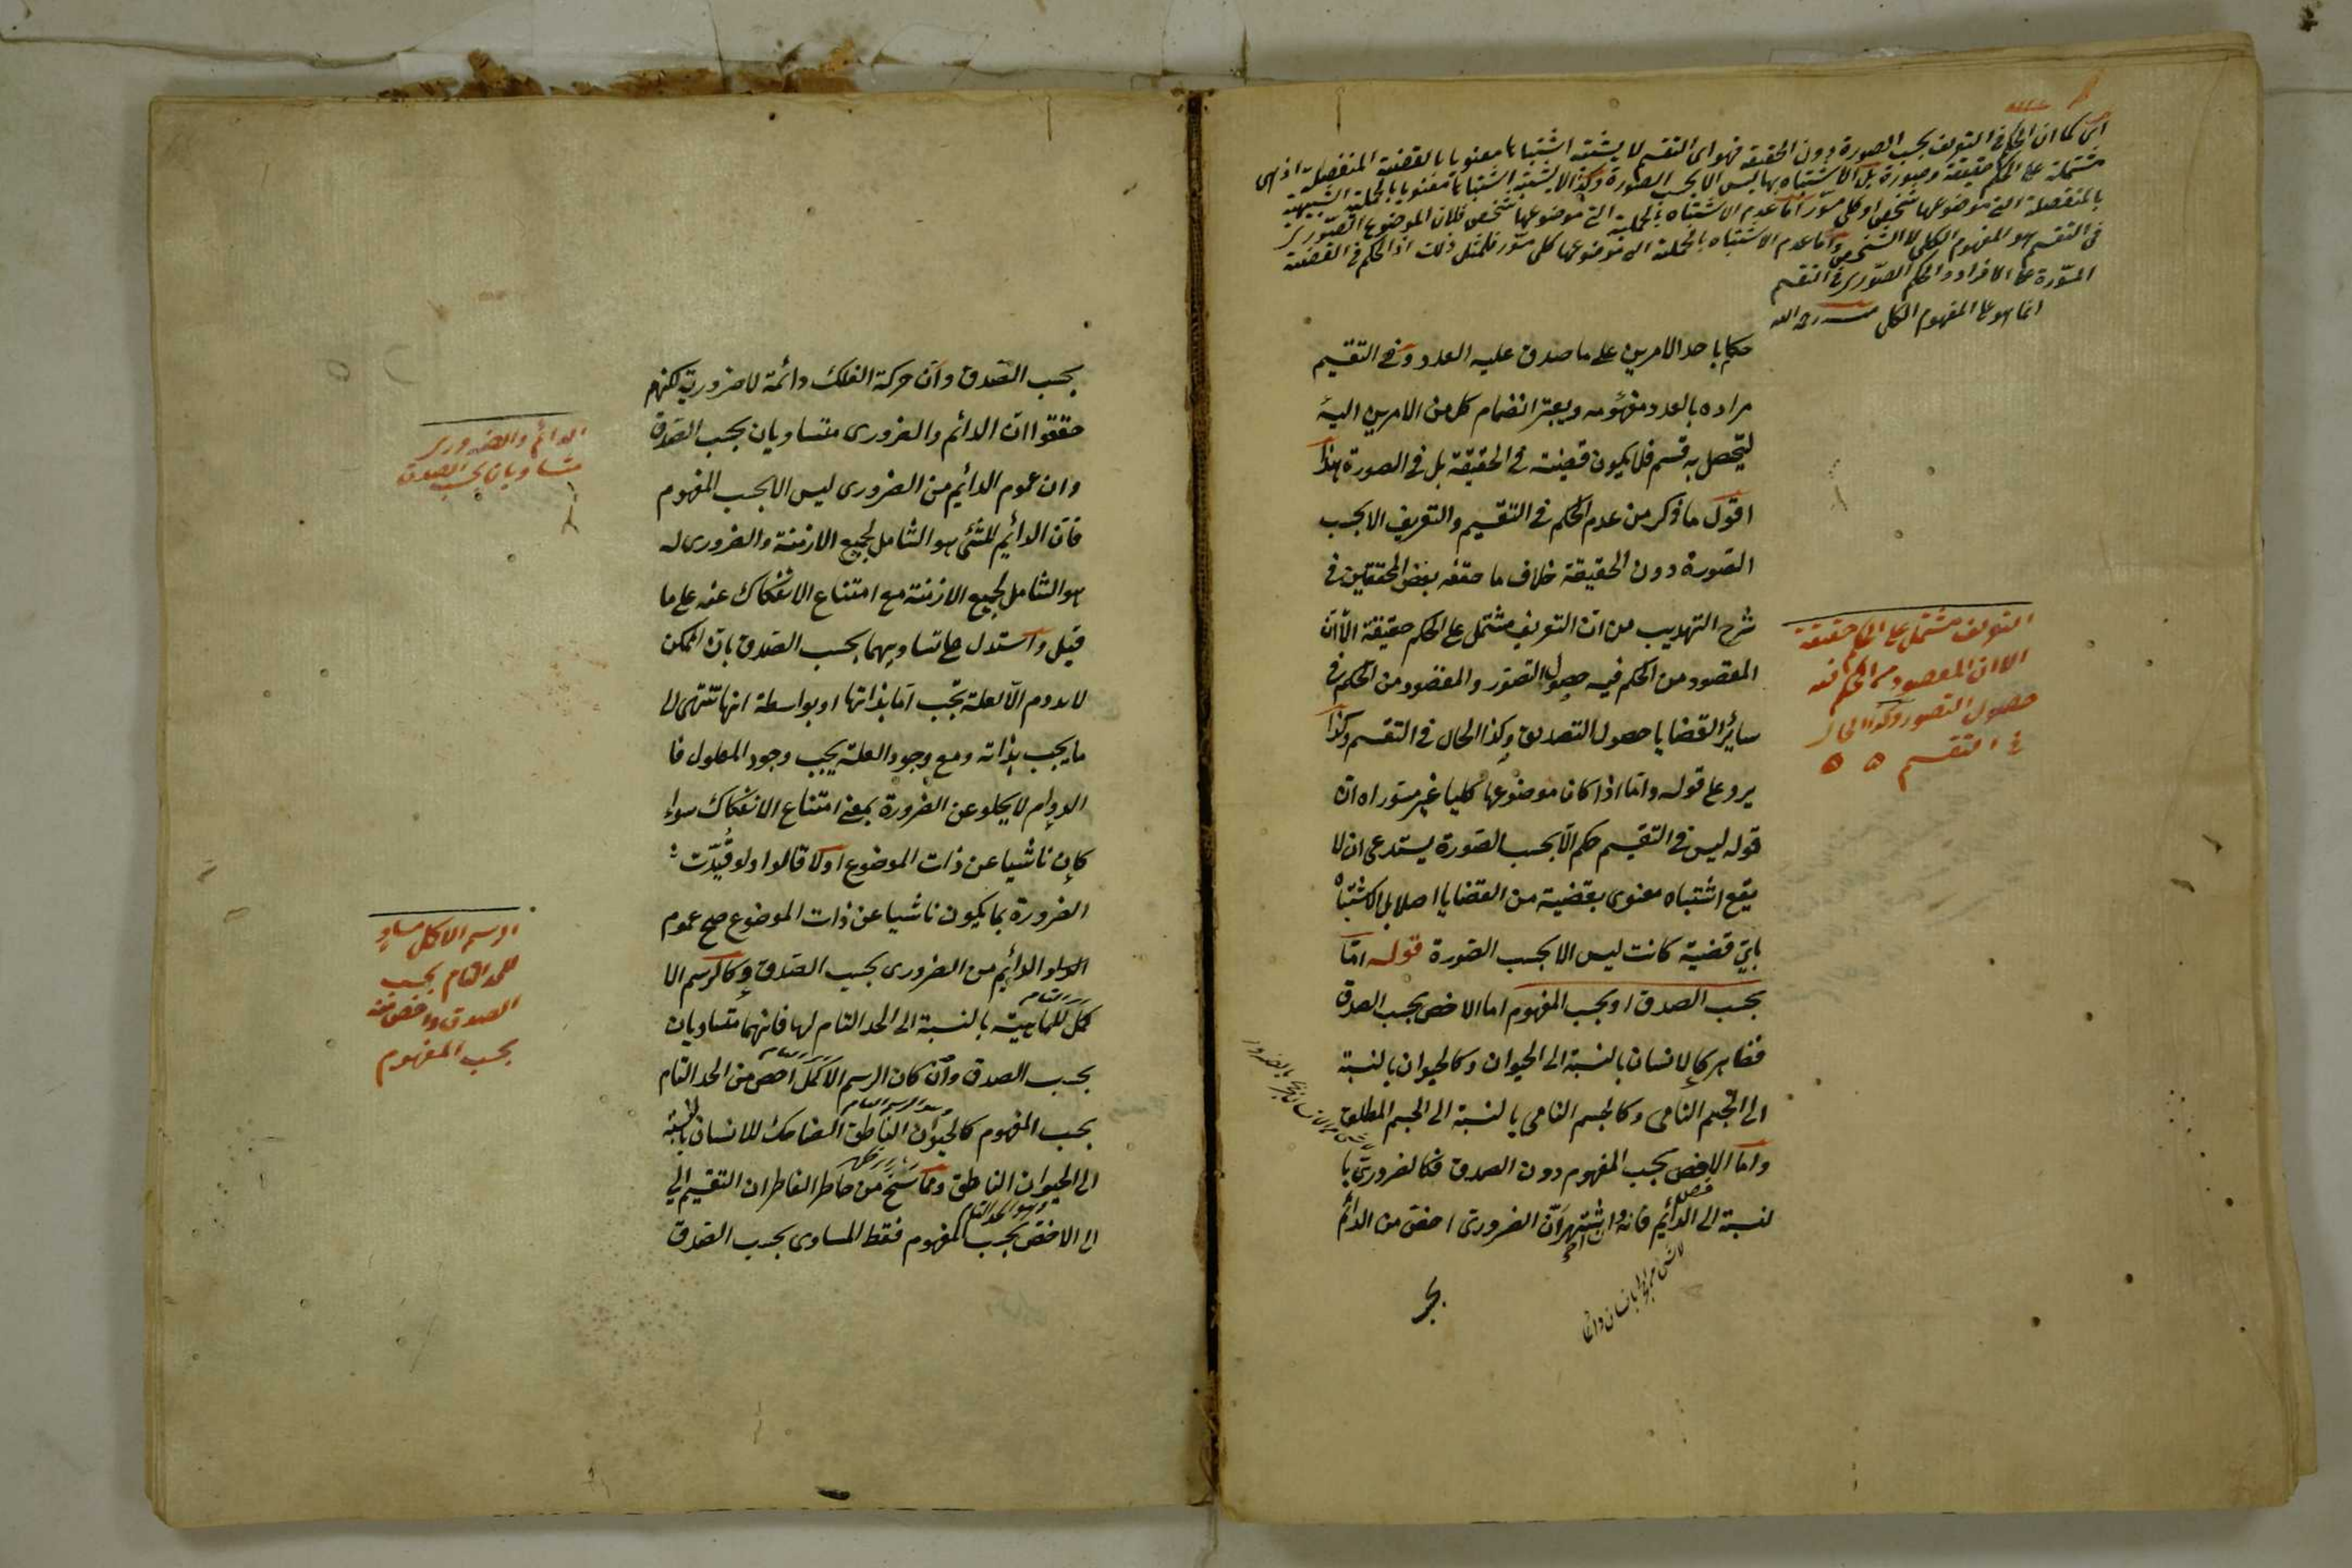 اى كما ان الحكم فى التعريف بحسب الصورة دون الحقيقة فهو اى التقسيم لا يشتبه اشتباها معنويا بالقضية المنفصلة اذ هى
مشتملة على الحكم حقيقة وصورة بل الاشتباه بها ليس الا بحسب الصورة وكذا لا يشتبه اشتباها معنويا بالحملية الشبيهة
بالمنفصلة التى موضوعها شخصى او كلى مسور اما عدم الاشتباه بالحملية التى موضوعها شخصى فلان الموضوع الصورى
فى التقسيم هو المفهوم الكلى لا الشخصى واما عدم الاشتباه بالحملية التى موضوعها كلى مسور فلمثل ذلك اذ الحكم فى القضية
المسورة على الافراد والحكم الصورى فى التقسيم
انما هو على المفهوم الكلى منه رحمه الله
حكم باحد الامرين على ما صدق عليه العدد وفى التقسيم
مراده بالعدد مفهومه ويعتبر انضمام كل من الامرين اليه
ليتحصل به قسم فلا يكون قضية فى الحقيقة بل فى الصورة هذا
اقول ما ذكر من عدم الحكم فى التقسيم والتعريف الا بحسب
الصورة دون الحقيقة خلاف ما حققه بعض المحققين فى
شرح التهذيب من ان التعريف مشتمل على الحكم حقيقة الا ان
المقصود من الحكم فيه حصول التصور والمقصود من الحكم فى
سائر القضايا حصول التصديق وكذا الحال فى التقسيم وكذا
يرد على قوله واما اذا كان موضوعها كليا غير مسور اه ان
قوله ليس فى التقسيم حكم الا بحسب الصورة يستدعى ان لا
يقع اشتباه معنوى بقضية من القضايا اصلا بل الاشتباه
باى قضية كانت ليس الا بحسب الصورة قوله اما
بحسب الصدق او بحسب المفهوم اما الاخص بحسب الصدق
فظاهر كالانسان بالنسبة الى الحيوان وكالحيوان بالنسبة
الى الجسم النامى وكالجسم النامى بالنسبة الى الجسم المطلق
واما الاخص بحسب المفهوم دون الصدق فكالضرورى با
لنسبة الى الدائم فانه وان اشتهر ان الضرورى اخص من الدائم
التعريف مشتمل على الحكم حقيقة
الا ان المقصود من الحكم فيه
حصول التصور وكذا الحال
فى التقسيم ه ه
بحسب الصدق وان حركة الفلك دائمة لا ضرورية لكنهم
حققوا ان الدائم والضرورى متساويان بحسب الصدق
وان عموم الدائم من الضرورى ليس الا بحسب المفهوم
فان الدائم للشئ هو الشامل لجميع الازمنة والضرورى له
هو الشامل لجميع الازمنة مع امتناع الانفكاك عنه على ما
قيل واستدل على تساويهما بحسب الصدق بان الممكن
لا يدوم الا لعلة تجب اما بذاتها او بواسطة انها تنتهى الى
ما يجب بذاته ومع وجود العلة يجب وجود المعلول فا
الدوام لا يخلو عن الضرورة بمعنى امتناع الانفكاك سواء
كان ناشيا عن ذات الموضوع اولا قالوا ولو قيدت
الضرورة بما يكون ناشيا عن ذات الموضوع صح عموم
الدائم من الضرورى بحسب الصدق وكالرسم الا
كمل للماهية بالنسبة الى الحد التام لها فانهما متساويان
بحسب الصدق وان كان الرسم الاكمل اخص من الحد التام
بحسب المفهوم كالحيوان الناطق الضاحك للانسان بالنسبة
الى الحيوان الناطق ومما سنح من خاطر الفاطر ان التقسيم الى
الى الاخص بحسب المفهوم فقط المساوى بحسب الصدق
وهو الحد التام
الدائم والضرورى
متساويان بحسب الصدق
الرسم الاكمل مساو
للحد التام بحسب
الصدق واخص منه
بحسب المفهوم